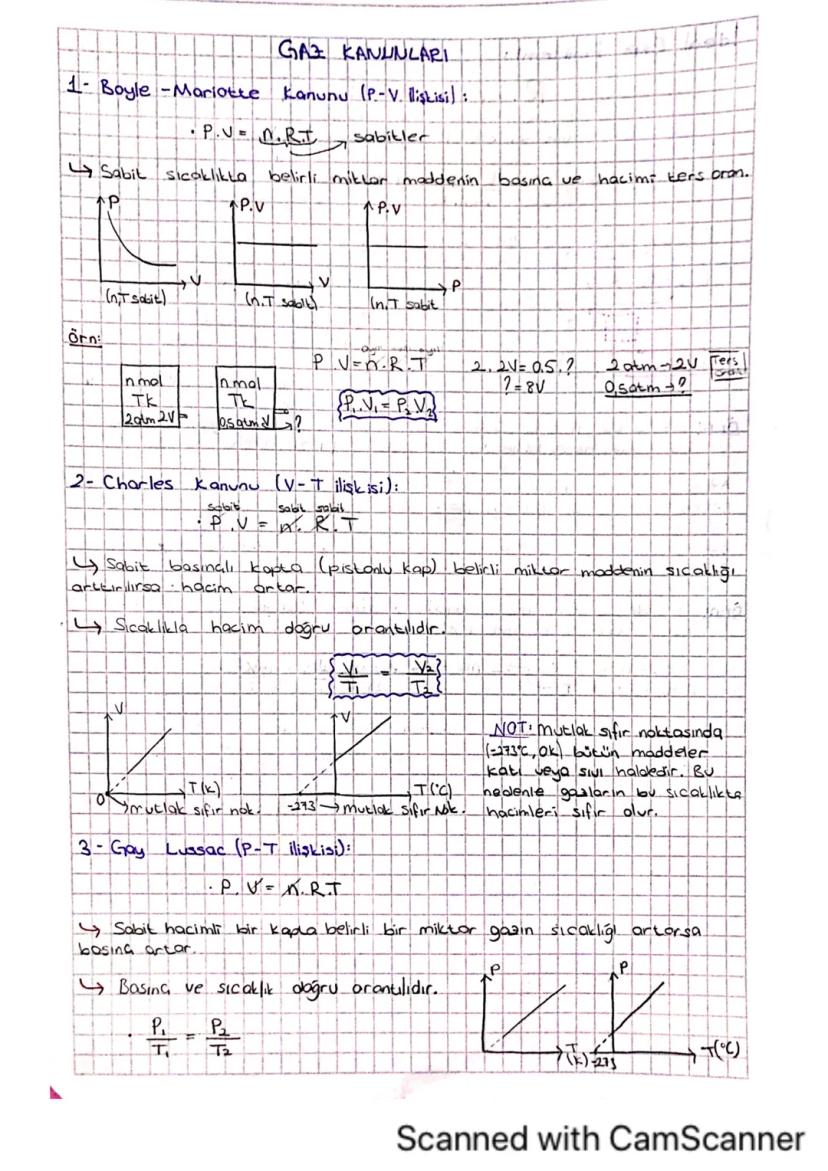 GAZ KANUNLARI
1- Boyle -Mariotte Kanunu (P-V ilişkisi) :
• P.V = n.R.T → sabitler
↳ Sabit sıcaklıkta belirli miktar maddenin basınç ve hacimi ters oran.
P P.V P.V
V V P
(n,T sabit) (n,T sabit) (n,T sabit
Örn:
P V = n.R.T 2. 2V = 0,5.? 2 atm → 2V Ters
n mol n mol ? = 8V 0,5 atm → ? oran
TK TK P₁.V₁ = P₂.V₂
2atm 2V 0,5 atm ?
2- Charles Kanunu (V-T ilişkisi):
sabit sabit sabit
• P.V = n. R.T
↳ Sabit basınçlı kapta (pistonlu kap) belirli miktar maddenin sıcaklığı
arttırılırsa hacim artar.
↳ Sıcaklıkla hacim doğru orantılıdır.
V₁/T₁ = V₂/T₂
V V
NOT: Mutlak sıfır noktasında
(-273°C, 0K) bütün maddeler
katı veya sıvı haldedir. Bu
nedenle gazların bu sıcaklıkta
hacimleri sıfır olur.
T(K) T(°C)
0 → mutlak sıfır nok. -273 → mutlak sıfır Nok.
3- Gay Lussac (P-T ilişkisi):
• P. V = n.R.T
↳ Sabit hacimli bir kapta belirli bir miktar gazın sıcaklığı artarsa
basınç artar.
↳ Basınç ve sıcaklık doğru orantılıdır.
P P
• P₁/T₁ = P₂/T₂
T (K) -273 T(°C)
Scanned with CamScanner